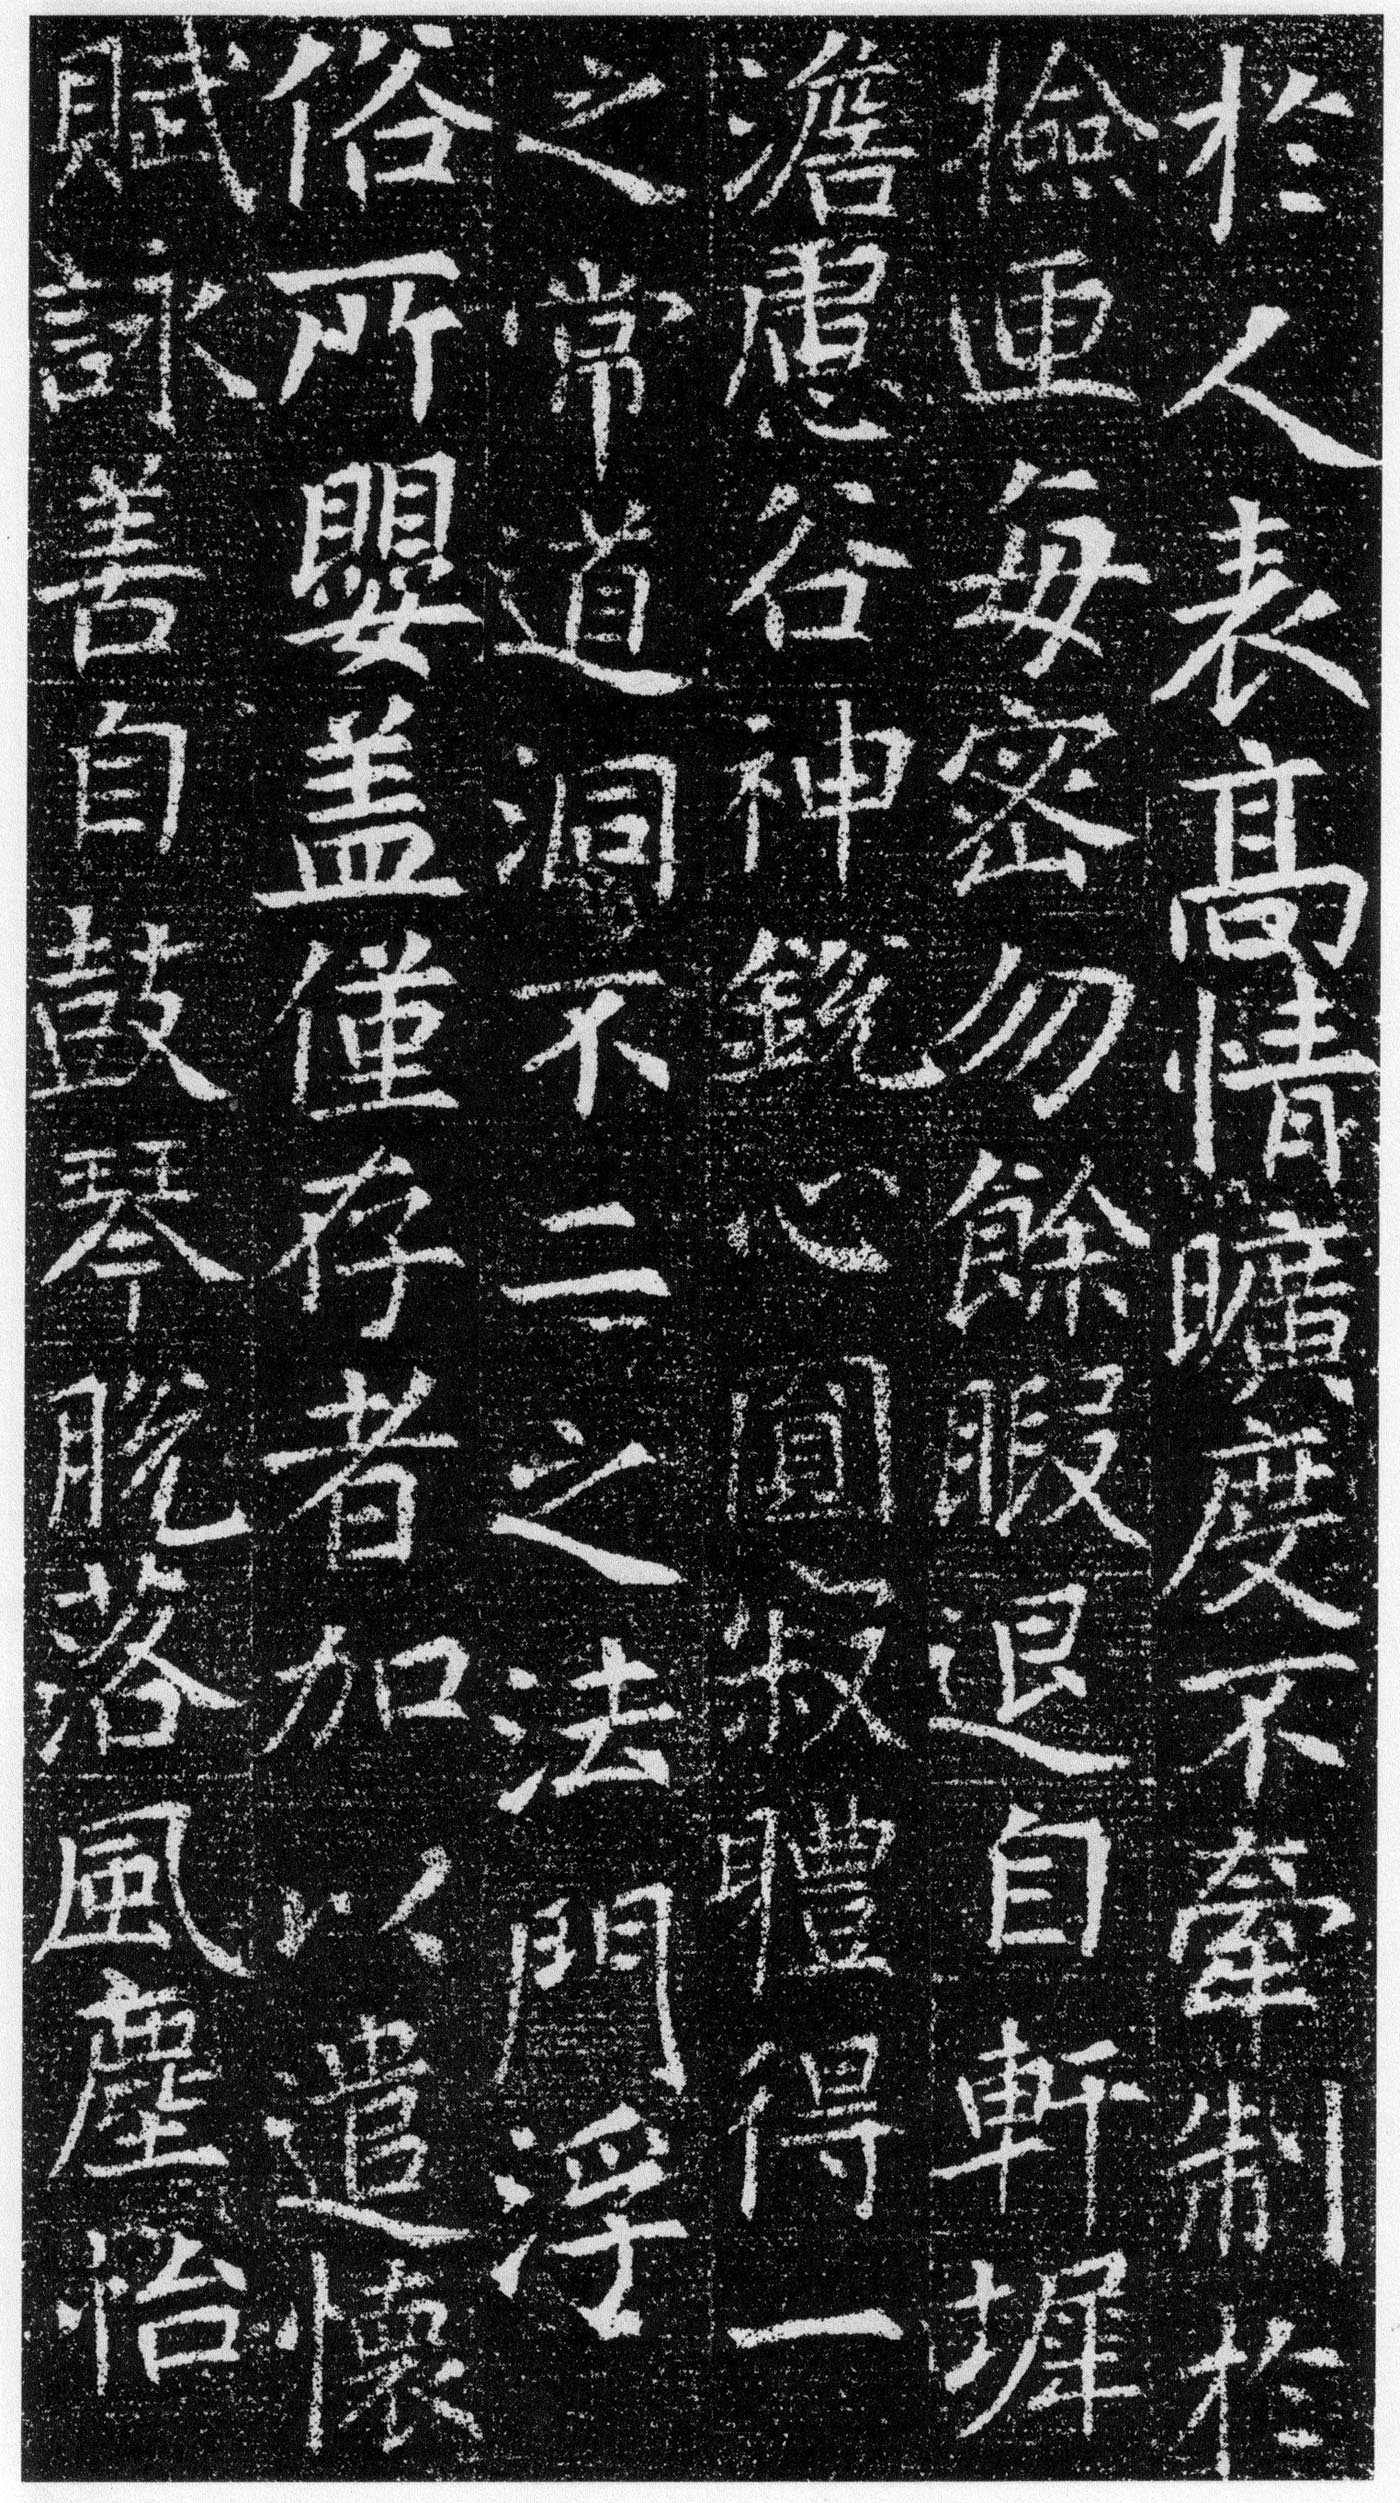 於人表高情曠度不牽制於
撿每密勿餘暇退自軒墀
澹慮谷神銳心圓寂體得一
之常道洞不二之法門浮
俗所嬰盖僅存者加以遣懷
賦詠善自鼓琴脫落風塵怡